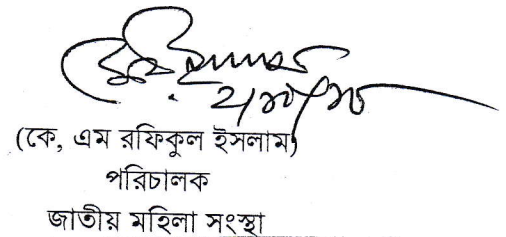 (কে, এম রফিকুল ইসলাম)
পরিচালক
জাতীয় মহিলা সংস্থা